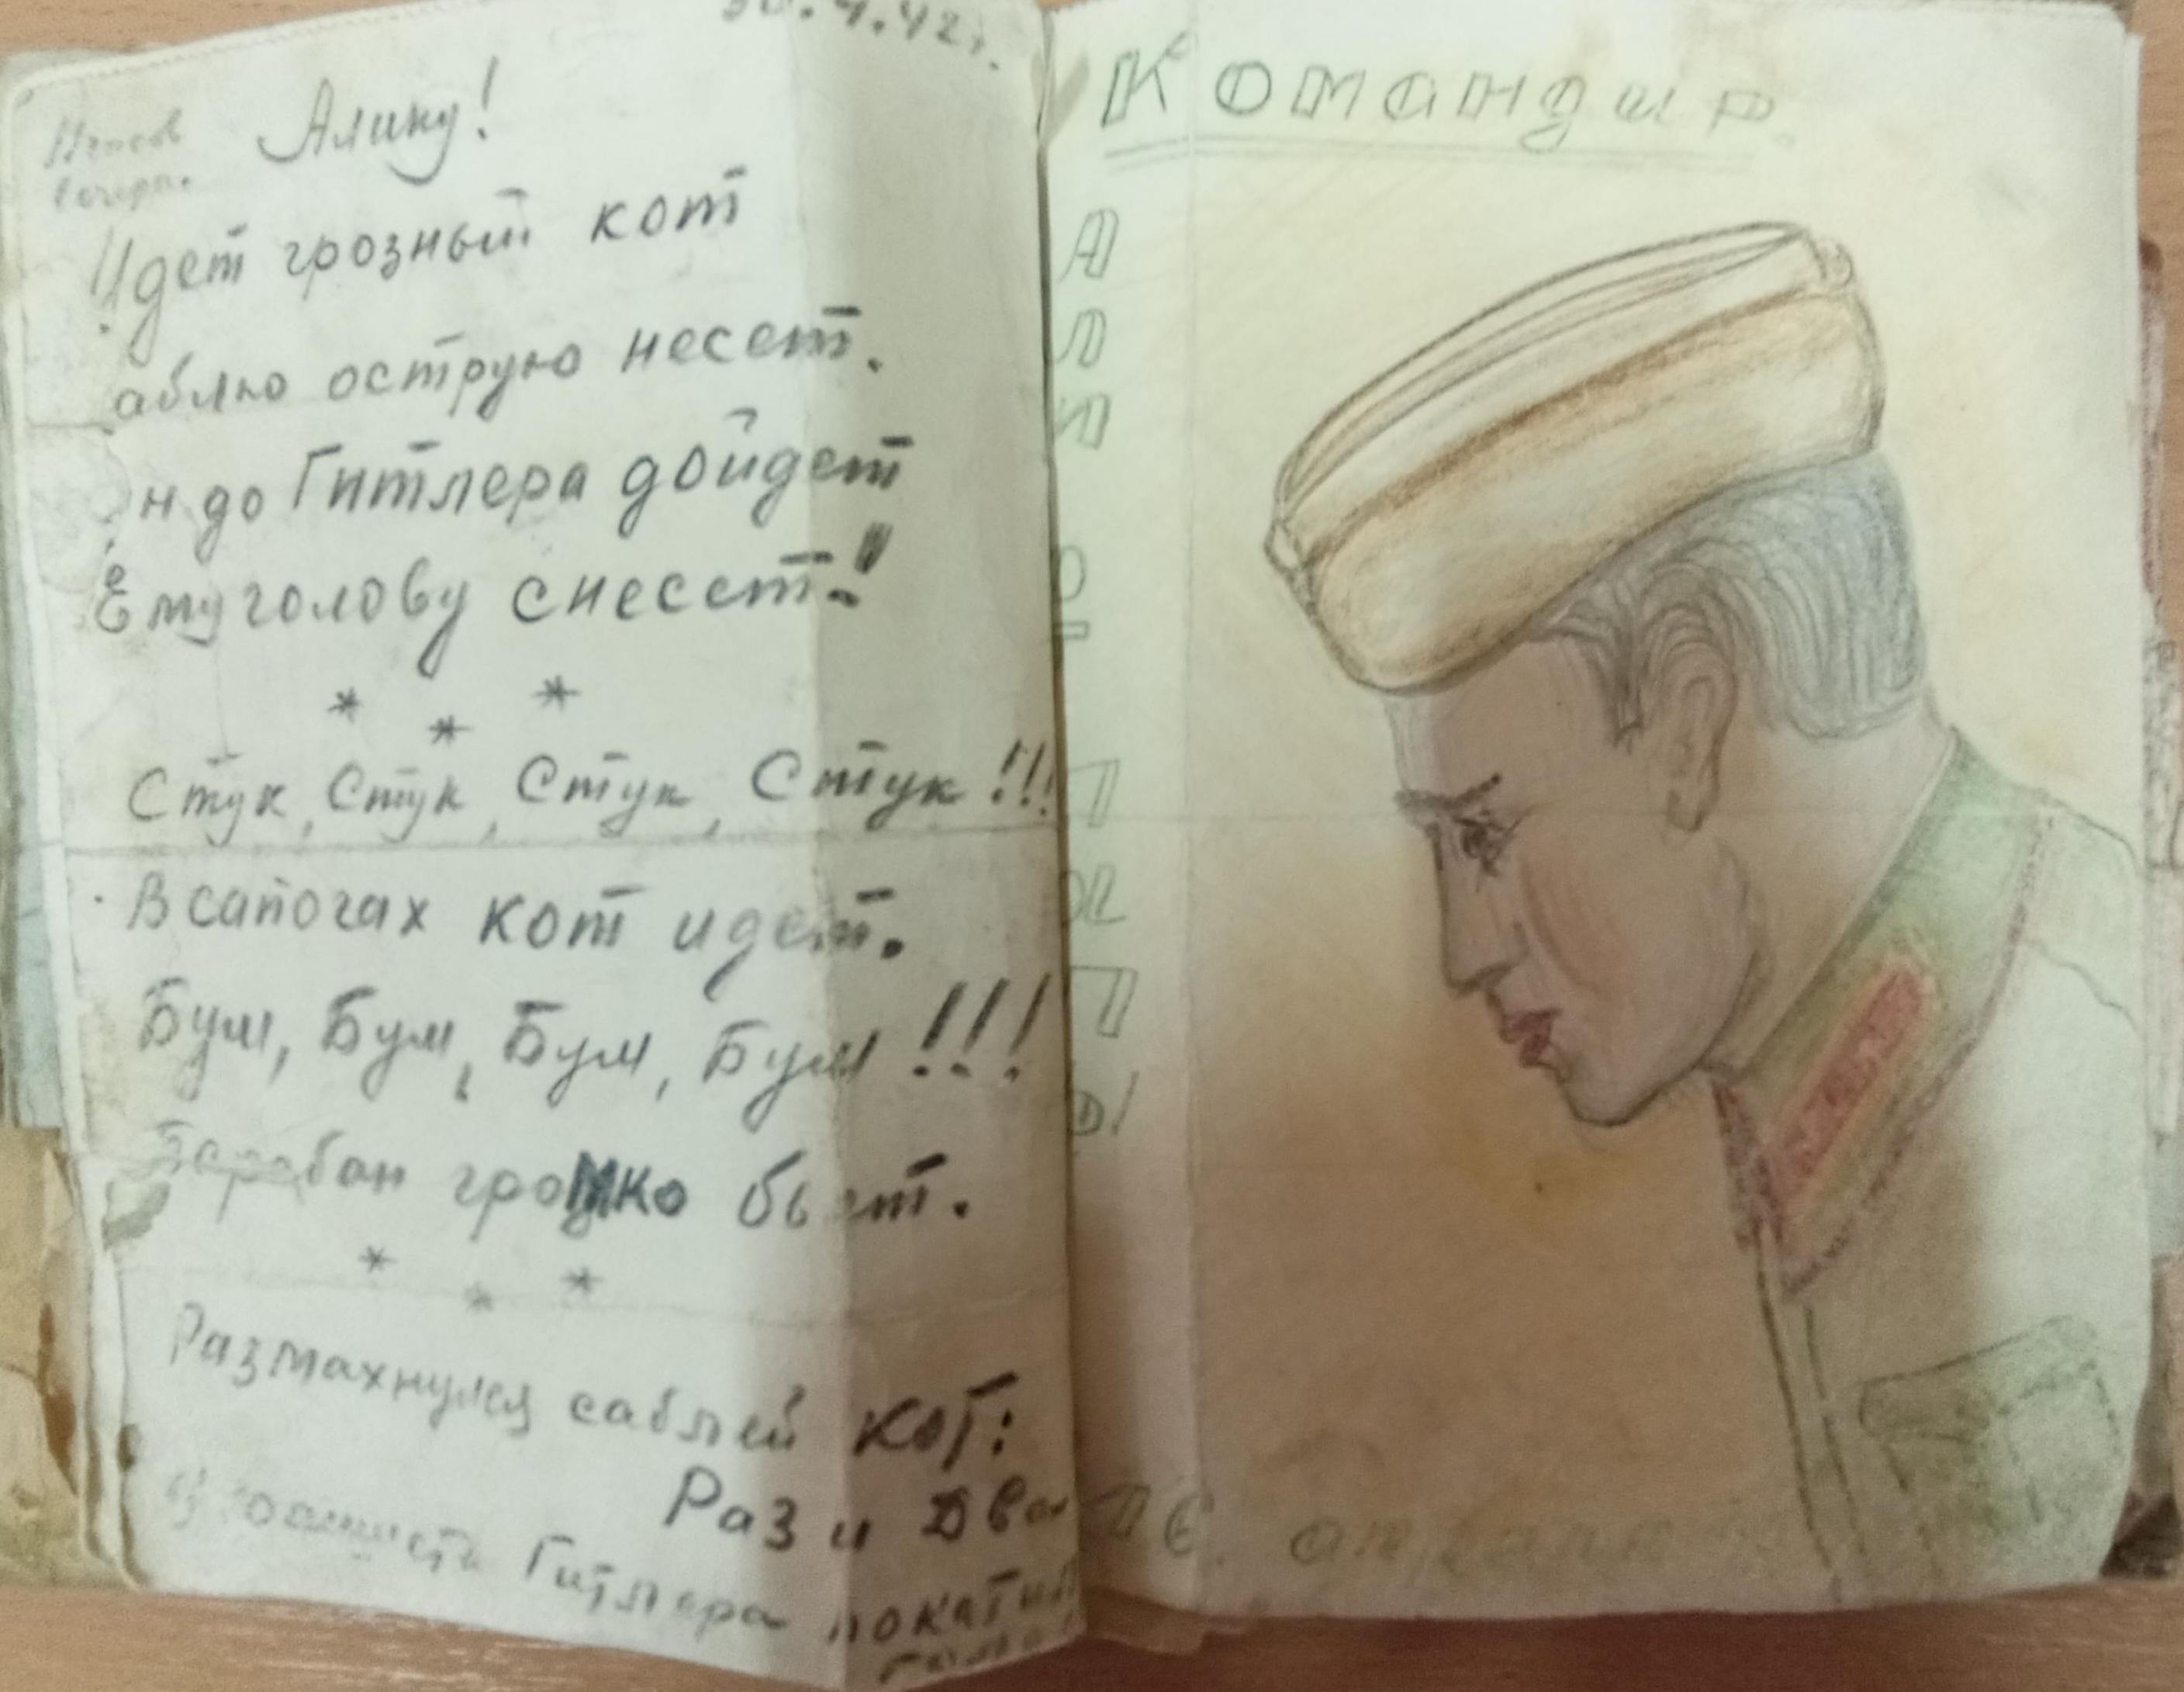 30.4.42г.
Алику!
Идет грозный кот
аблю острую несет.
н до Гитлера дойдет
Ему голову снесет!
* * *
Стук, Стук, Стук, Стук!!!
В сапогах кот идет.
Бум, Бум, Бум, Бум!!!
Барабан громко бьет.
* * *
Размахнулся саблей кот:
Раз и два
Гитлера покатил
Командир.
А
Л
И
О
Т
П
А
П
Ы